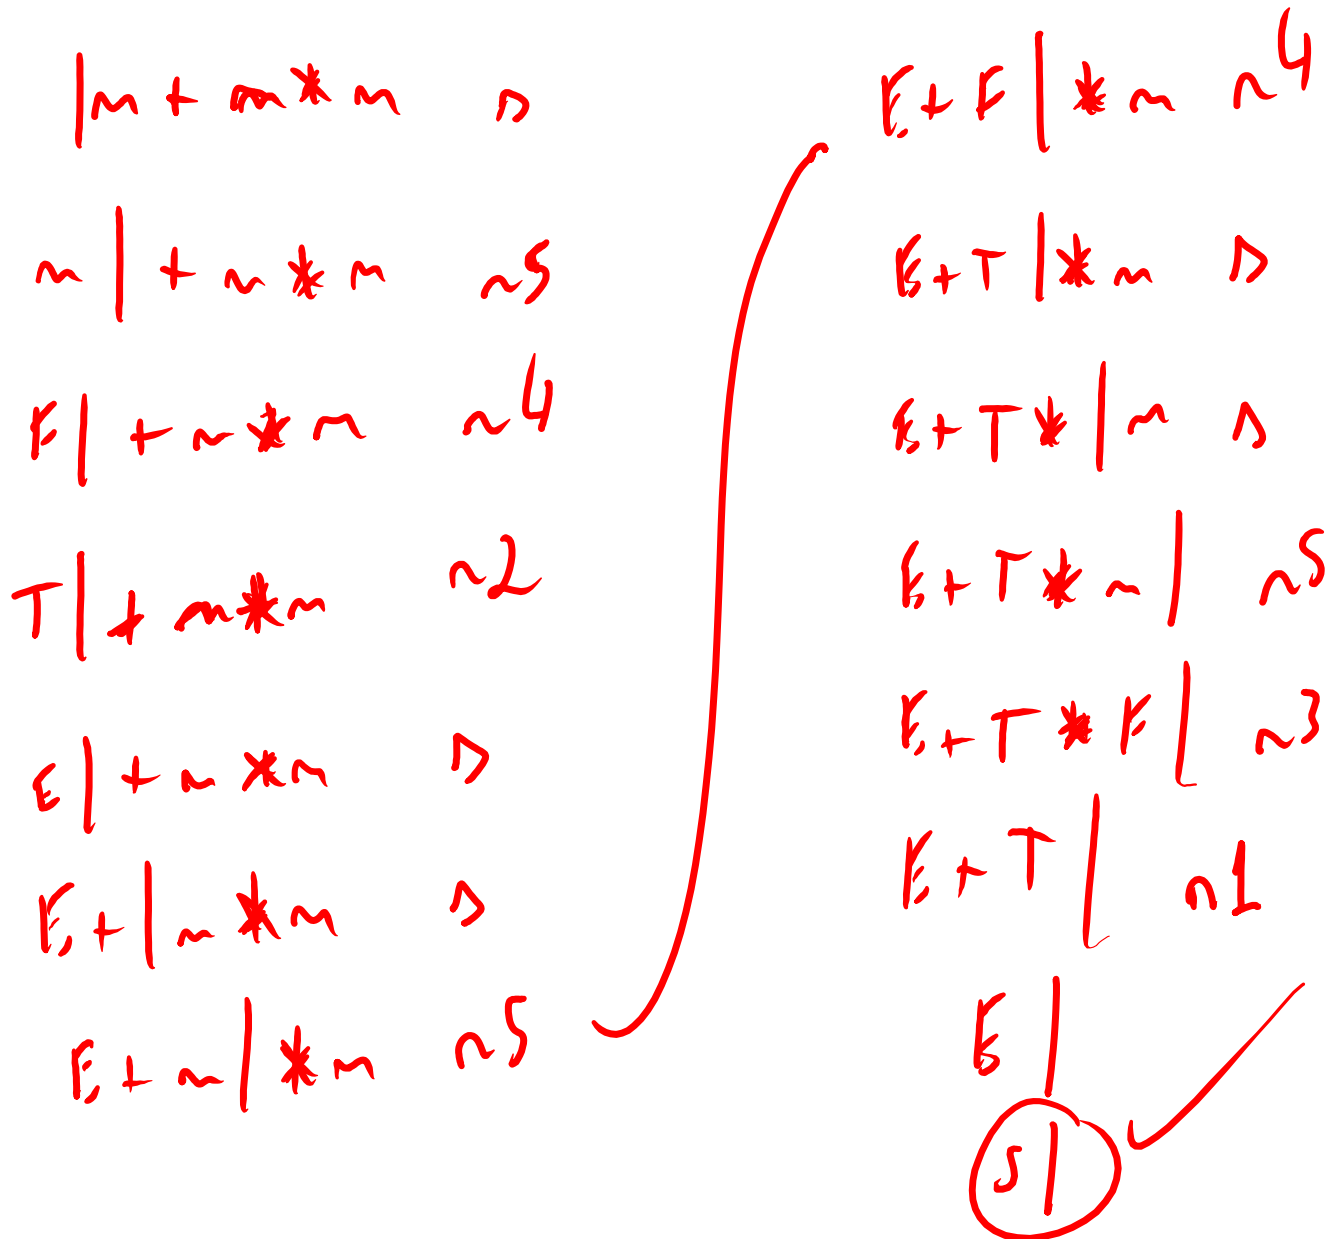 |n + n * n s
n | + n * n r5
F | + n * n r4
T | + n * n r2
E | + n * n s
E + | n * n s
E + n | * n r5
E + F | * n r4
E + T | * n s
E + T * | n s
E + T * n | r5
E + T * F | r3
E + T | r1
E |
S |